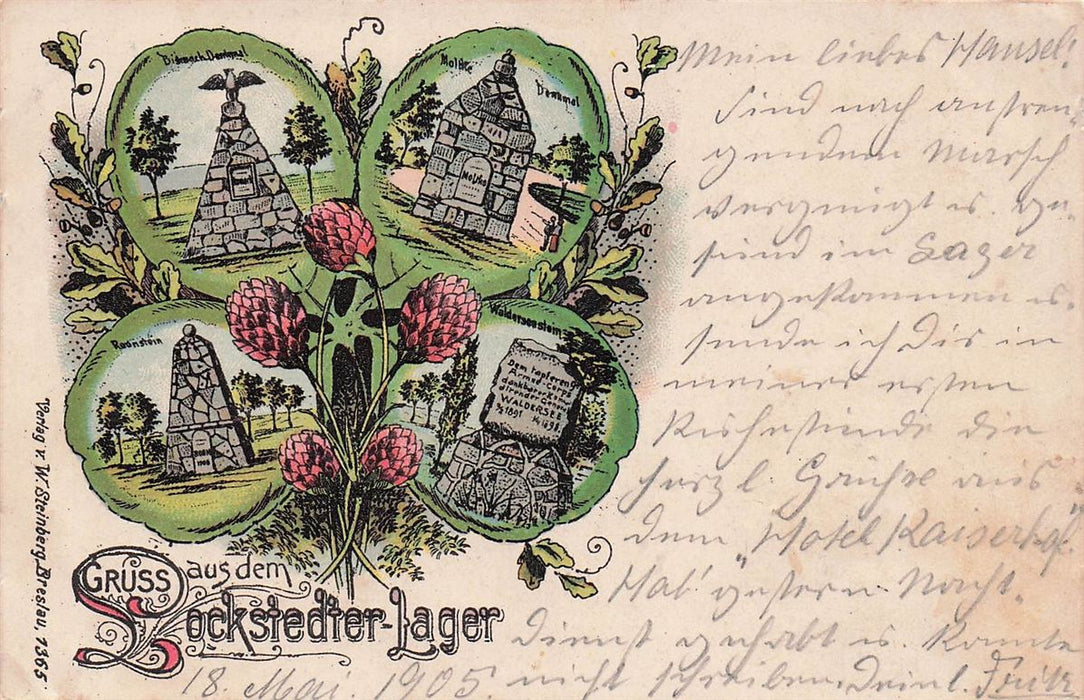 Bismarck Denkmal
Moltke
Denkmal
Moltke
Roonstein
Waldersee stein
Dem tapferen
Armee-Corps
WALDERSEE
1891
1898
GRUSS aus dem
Lockstedter-Lager
Verlag v. W. Steinberg, Breslau, 1365
18. Mai. 1905.
Mein liebes Hansel!
Sind nach anstren-
gendem Marsch
vergnügt u. ge-
sund im Lager
angekommen u.
sende ich Dir in
meiner ersten
die
herzl. Grüße aus
dem „Hotel Kaiserhof.
Hab' gestern Nacht-
Dienst gehabt u. konnte
nicht schreiben. Dein l. Fritz